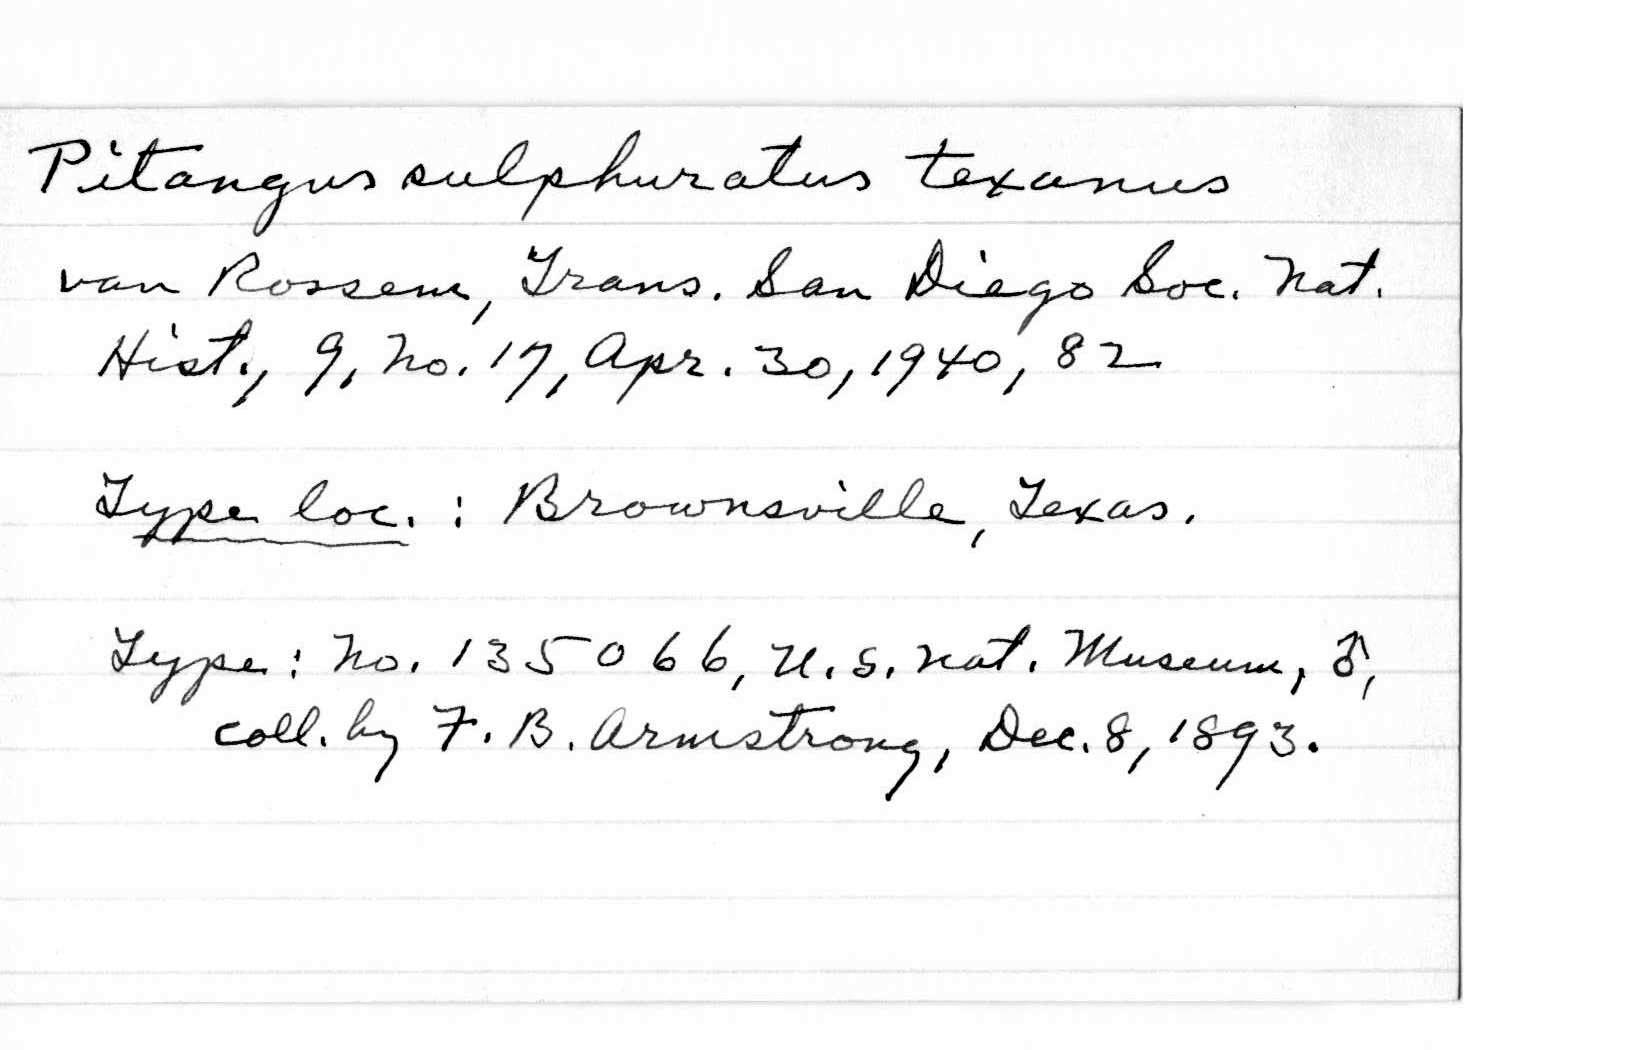 Pitangus sulphuratus texanus
van Rossem, Trans. San Diego Soc. Nat.
Hist., 9, no. 17, Apr. 30, 1940, 82
Type loc. : Brownsville, Texas.
Type : No. 135066, U.S. Nat. Museum, ♂,
coll. by F. B. Armstrong, Dec. 8, 1893.